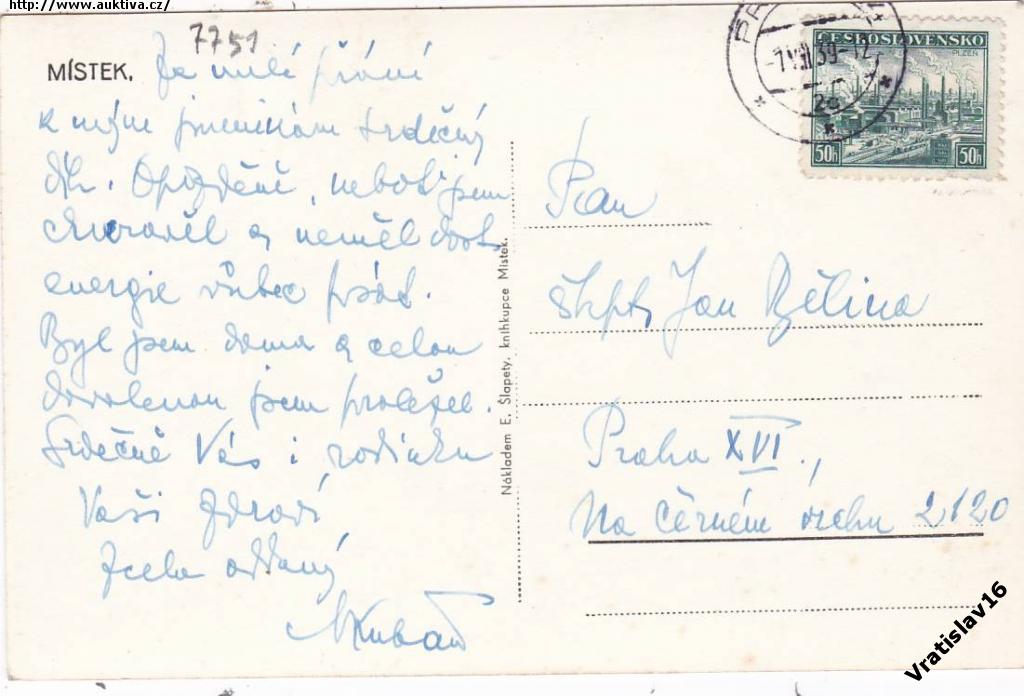 http://www.auktiva.cz/
7751
MÍSTEK.
Za milé přání
k mým jmeninám srdečný
dík. Opožděně, neboť jsem
churavěl a neměl dost
energie vůbec psát.
Byl jsem doma a celou
dovolenou jsem proležel.
Srdečně Vás i rodinku
Vaši zdraví
zcela oddaný
Nákladem E. Šlapety, knihkupce Místek.
ČESKOSLOVENSKO
PLZEŇ
50h 50h
-7.VIII.39-12
2c
Pan
škpt. Jan Bělina
Praha XVI.,
Na černém vrchu 2120
Vratislav16